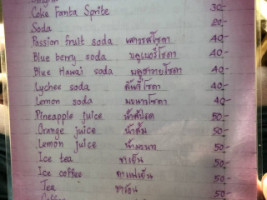 Coke Fanta Sprite 30-
Soda 20-
Passion fruit soda เสาวรสโซดา 40-
Blue berry soda บลูเบอรี่โซดา 40-
Blue Hawai soda บลูฮาวายโซดา 40-
Lychee soda ลิ้นจี่โซดา 40-
Lemon soda มะนาวโซดา 40-
Pineapple juice น้ำสับปะรด 50-
Orange juice น้ำส้ม 50-
Lemon juice น้ำมะนาว 50-
Ice tea ชาเย็น 50-
Ice coffee กาแฟเย็น 50-
Tea ชาร้อน 50-